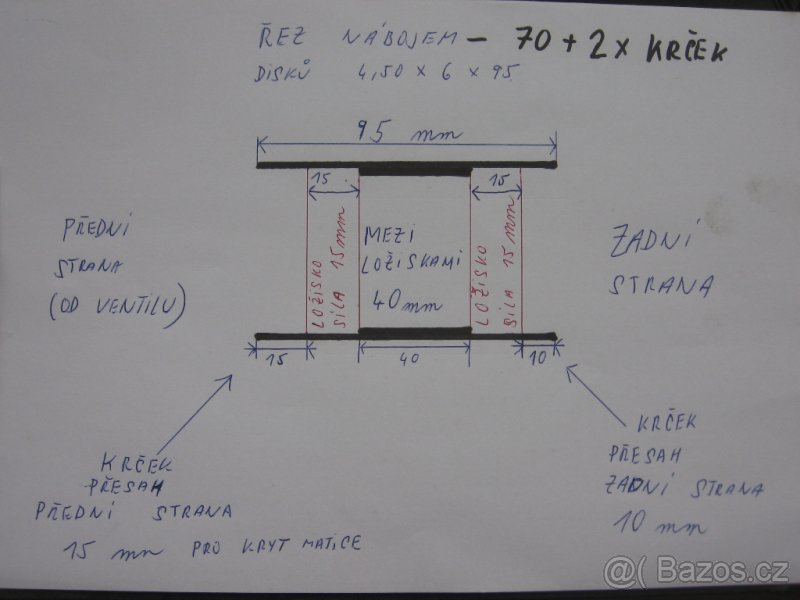 ŘEZ NÁBOJEM - 70 + 2 x KRČEK
DISKŮ 4,50 x 6 x 95
95 mm
15
15
PŘEDNÍ
STRANA
(OD VENTILU)
LOŽISKO
SÍLA 15mm
MEZI
LOŽISKAMI
40mm
LOŽISKO
SÍLA 15mm
ZADNÍ
STRANA
15
40
10
KRČEK
PŘESAH
PŘEDNÍ STRANA
15 mm PRO KRYT MATICE
KRČEK
PŘESAH
ZADNÍ STRANA
10 mm
@( Bazos.cz